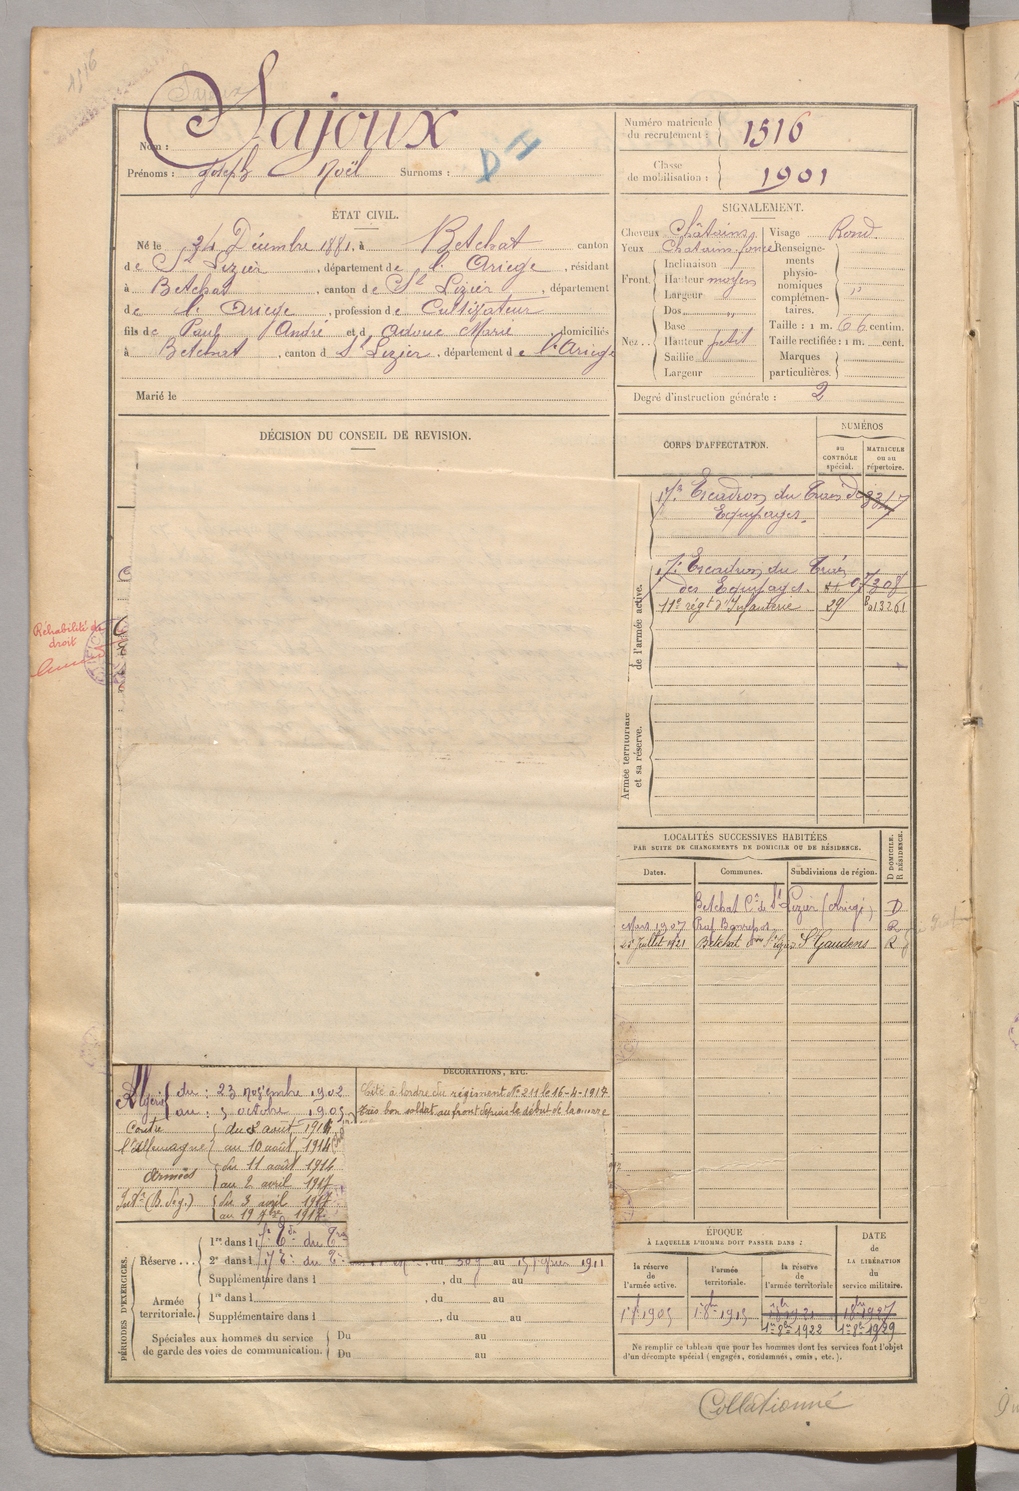 1516
Sajoux
Nom :
Prénoms : Joseph Noël Surnoms :
Numéro matricule du recrutement : 1516
Classe de mobilisation : 1901
ÉTAT CIVIL.
Né le 24 Décembre 1881, à Betchat canton
de St Lizier, département de l'Ariège, résidant
à Betchat, canton de St Lizier, département
de l'Ariège, profession de Cultivateur
fils de Paul André et d Marie domiciliés
à Betchat, canton d St Lizier, département de l'Ariège
Marié le
SIGNALEMENT.
Cheveux Châtains
Yeux Chatains foncé
Front. Inclinaison
Hauteur moyen
Largeur
Nez . . Dos "
Base
Hauteur petit
Saillie
Largeur
Visage Rond.
Renseignements physionomiques complémentaires. "
Taille : 1 m. 66 centim.
Taille rectifiée : 1 m. cent.
Marques particulières.
Degré d'instruction générale : 2
DÉCISION DU CONSEIL DE REVISION.
CORPS D'AFFECTATION.
NUMÉROS
au CONTRÔLE spécial.
MATRICULE ou au répertoire.
17e Escadron du Train des
Equipages.
17e Escadron du Train
des Equipages.
11e régt d'Infanterie 29 13261
de l'armée active.
Armée territoriale et sa réserve.
Réhabilité de
droit
LOCALITÉS SUCCESSIVES HABITÉES
PAR SUITE DE CHANGEMENTS DE DOMICILE OU DE RÉSIDENCE.
Dates. Communes. Subdivisions de région. D DOMICILE. R RÉSIDENCE.
Betchat Cn de St Lizier (Ariège) D
Mars 1907 Bonrepos R
Juillet 1921 Betchat St Gaudens R
DÉCORATIONS, ETC.
Cité à l'ordre du régiment No 211 le 16-4-1917
Très bon soldat au front depuis le début de la guerre
Algérie du : 23 novembre 1902
au : 5 octobre 1905
Contre l'Allemagne
du 2 août 1914
au 10 août 1914
Armées
du 11 août 1914
au 2 avril 1917
Intr (B. Seg.)
du 3 avril 1917
PÉRIODES D'EXERCICES.
Réserve . . . 1re dans l
2e dans l au 15 1911
Supplémentaire dans l , du au
Armée territoriale. 1re dans l , du au
Supplémentaire dans l , du au
Spéciales aux hommes du service de garde des voies de communication. Du au
Du au
ÉPOQUE
À LAQUELLE L'HOMME DOIT PASSER DANS :
la réserve de l'armée active.
l'armée territoriale.
la réserve de l'armée territoriale
DATE de LA LIBÉRATION du service militaire.
1905 1915 1922 1929
Ne remplir ce tableau que pour les hommes dont les services font l'objet
d'un décompte spécial (engagés, condamnés, omis, etc.).
Collationné